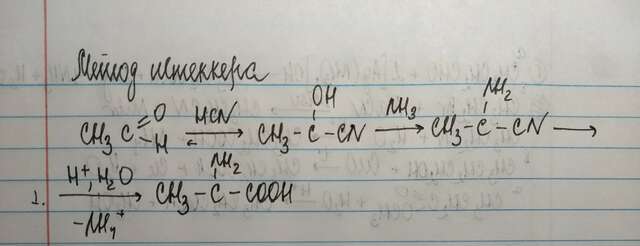 Метод Штеккера
CH₃ C =O –H HCN → CH₃–C(OH)–CN NH₃ → CH₃–C(NH₂)–CN →
1. H⁺, H₂O → –NH₄⁺ CH₃–C(NH₂)–COOH